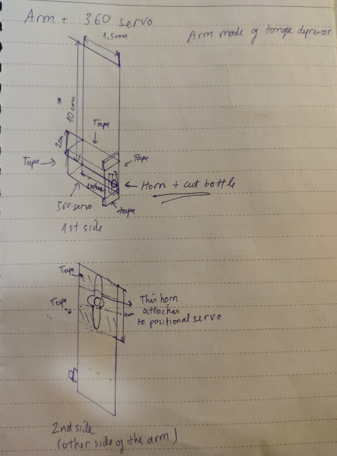 Arm + 360 servo
Arm made of tonge depressor
1.5cm
10cm
2cm
Tape
Tape
Tape
Horn + cut bottle
360 servo
tape
1st side
Tape
Tape
This horn
attaches
to positional servo
2nd side
(other side of the arm)